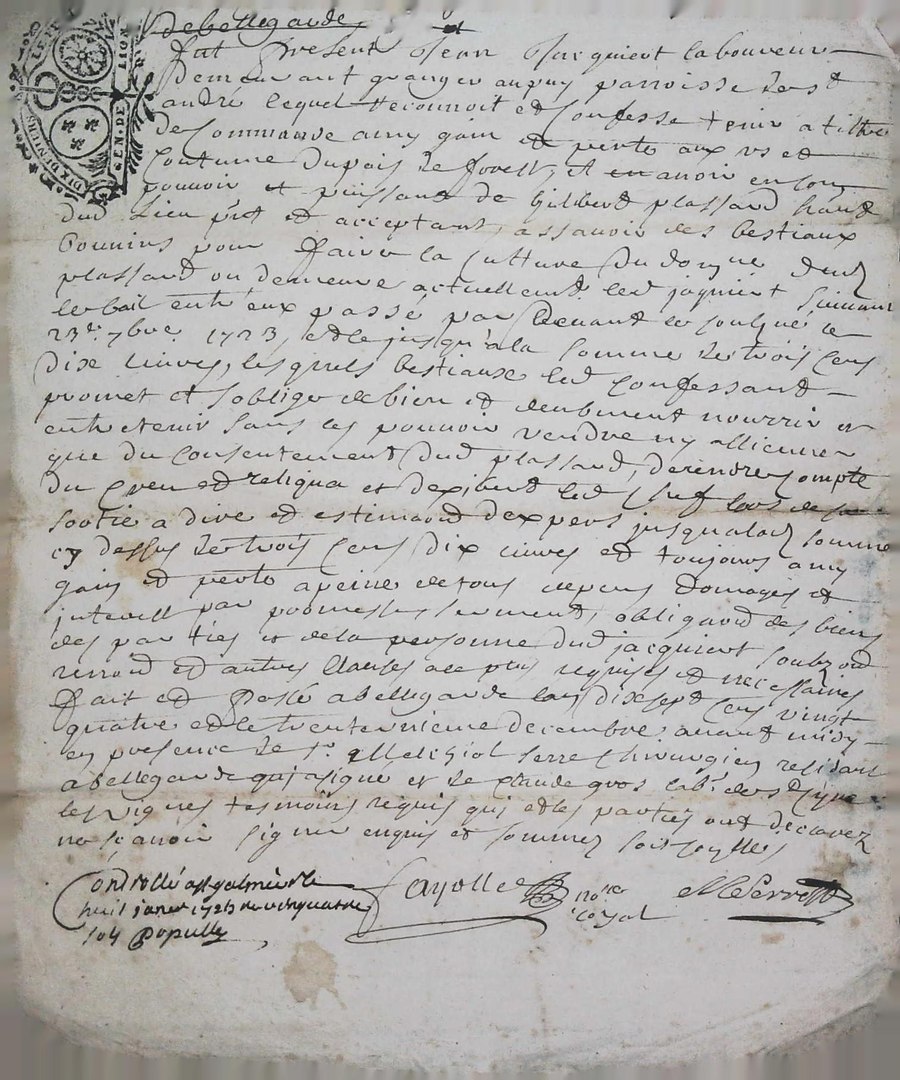 debellegarde
fut present Jean Jacquient laboureur
demeurant granger aupuy parroisse de st
andré lequel reconnoit et Confesse tenir a tiltre
de Commande amy gain et perte aux us et
Coutume dupais de forestz, et en avoir en son
pouvoir et puissant de Gilibert plassard
dud Lieu pnt et acceptant, assavoir des bestiaux
Bouvins pour faire la Culture du domne dud
plassard ou demeure actuellemt led jaquient suivant
le bail entr'eux passé par devant le soubné le
23e 7bre 1723, et le jusqu'a la somme de trois Cens
dix livres, lesquels bestiaux led Confessant
promet et s'oblige de bien et deubment nourrir
entretenir sans les pouvoir vendre ny alliener
que du Consentement dud plassard, de rendre Compte
du Creu et reliqua et led Chef lors de sa
sortie a dire et estimaon d'expers jusqualad somme
cy dessus de trois Cens dix livres et toujours amy
gain et perte apeine de tous depens domages et
interest par promesses serment, obligaon des biens
des parties et de la personne dud jacquient soubzon
renon et autres Clauses acc plus requises et necessaires
fait et Passé a bellegarde lan dix sept Cens vingt
quatre et le trente unieme decembre avant midy
en presence de sr Melchiol Serre Chirurgien residant
abellegarde qui a signé et de Claude gros labr de st Cyre
les Vignes tesmoins requis qui et les parties ont declarez
ne scavoir signer enquis et sommez soit
Controllé a st galmier le
huit janer 1725 receu quatre
sols Populle
fayolle
nore
royal
M Serre
GEN. DE LION
DIX DENIERS